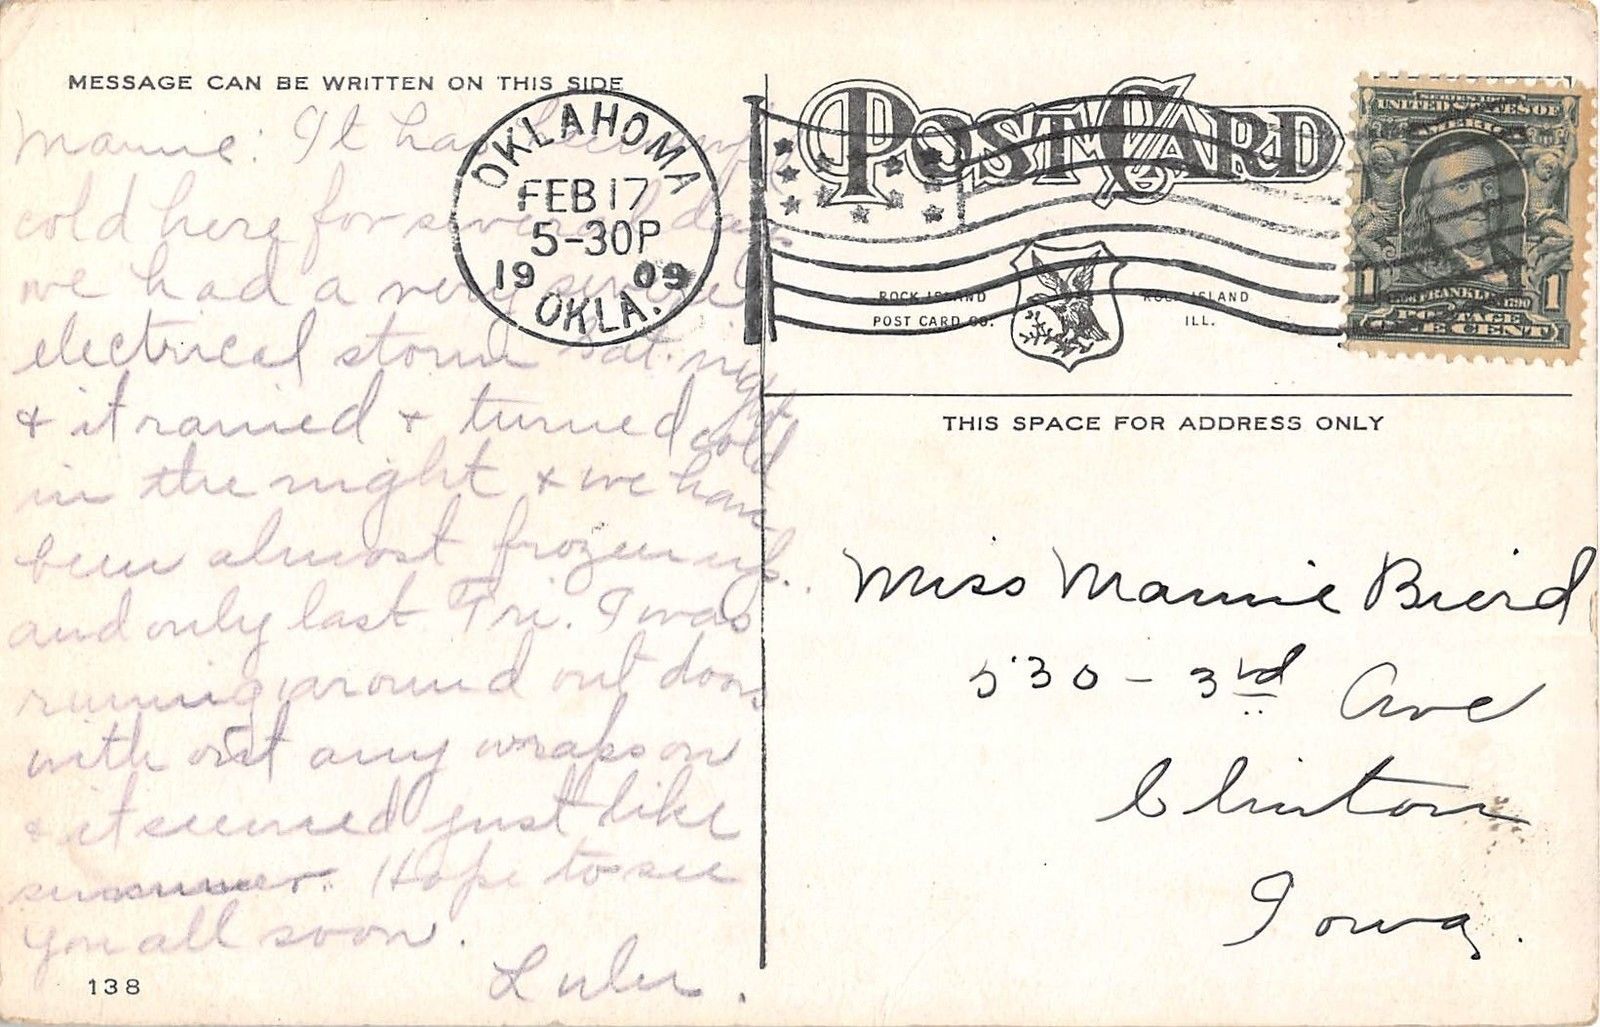 MESSAGE CAN BE WRITTEN ON THIS SIDE
Mamie: It has been
cold here for several days
we had a very severe
electrical storm Sat. night
& it rained & turned cold
in the night & we have
been almost frozen up.
and only last Fri. I was
running around out doors
with out any wraps on
& it seemed just like
summer. Hope to see
you all soon.
Lulu.
138
OKLAHOMA
FEB 17
5-30P
1909
OKLA.
POST CARD
ROCK ISLAND
POST CARD CO.
ROCK ISLAND
ILL.
UNITED STATES OF
AMERICA
FRANKLIN
POSTAGE
1 ONE CENT 1
THIS SPACE FOR ADDRESS ONLY
Miss Mamie Bierd
530 - 3rd Ave
Clinton
Iowa.